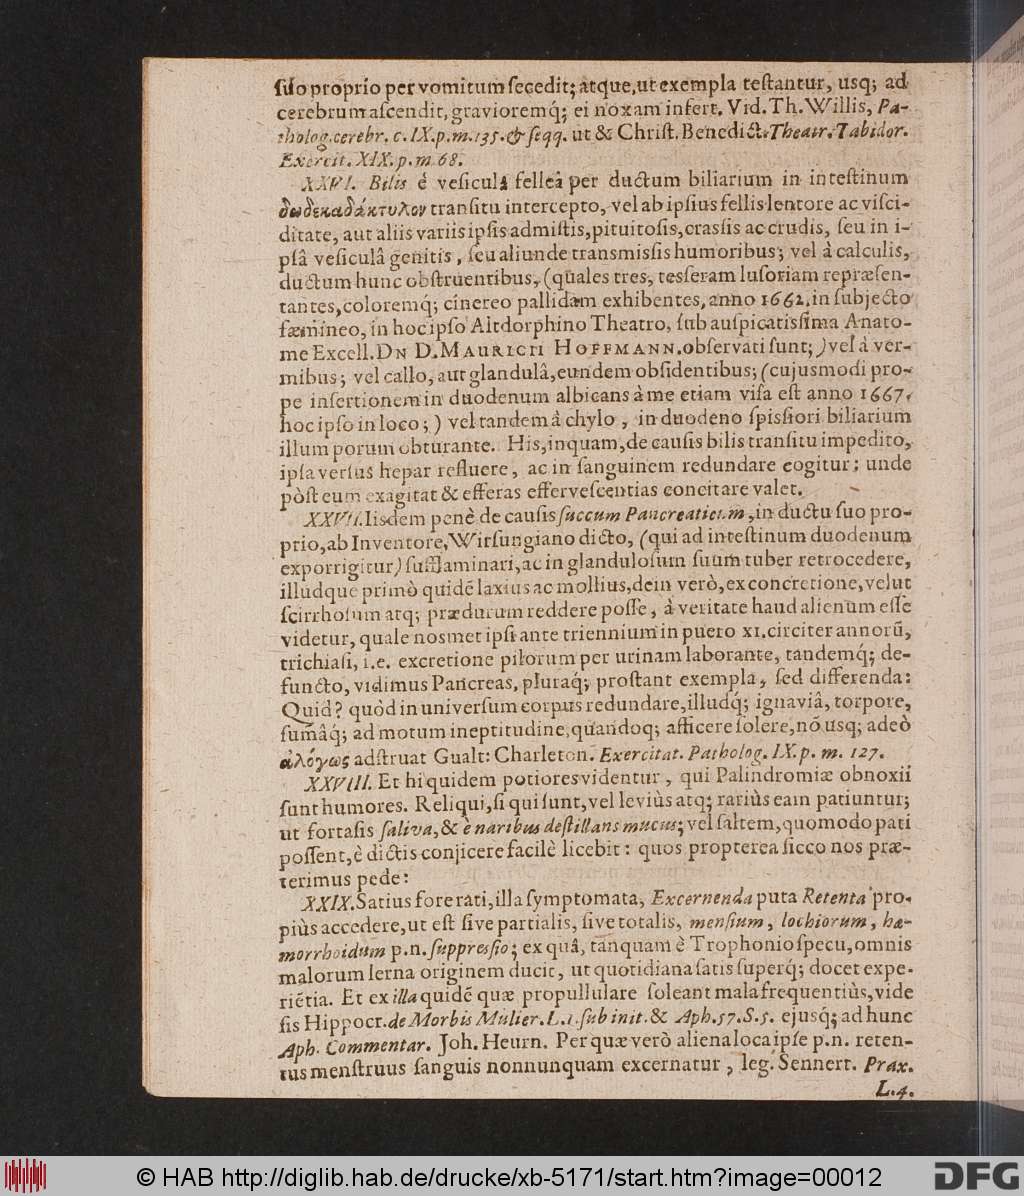 ſuo proprio per vomitum ſecedit; atque, ut exempla teſtantur, usq; ad
cerebrum aſcendit, gravioremq́; ei noxam infert. Vid. Th. Willis, Pa-
tholog. cerebr. c. IX. p. m. 135. & ſeqq. ut & Chriſt. Benedict. Theatr. Tabidor.
Exercit. XIX. p. m. 68.
XXVI. Bilis è veſiculâ felleâ per ductum biliarium in inteſtinum
δωδεκαδάκτυλον tranſitu intercepto, vel ab ipſius fellis lentore ac viſci-
ditate, aut aliis variis ipſis admiſtis, pituitoſis, craſſis ac crudis, ſeu in i-
pſâ veſiculâ genitis, ſeu aliunde transmiſſis humoribus; vel à calculis,
ductum hunc obſtruentibus, (quales tres, teſſeram luſoriam repræſen-
tantes, coloremq́; cinereo pallidam exhibentes, anno 1662. in ſubjecto
fæmineo, in hoc ipſo Altdorphino Theatro, ſub auſpicatisſima Anato-
me Excell. DN D. MAURICII HOFFMANN. obſervati ſunt;) vel à ver-
mibus; vel callo, aut glandulâ, eundem obſidentibus; (cujusmodi pro-
pe inſertionem in duodenum albicans à me etiam viſa eſt anno 1667.
hoc ipſo in loco;) vel tandem à chylo, in duodeno ſpisſiori biliarium
illum porum obturante. His, inquam, de cauſis bilis tranſitu impedito,
ipſa verſus hepar refluere, ac in ſanguinem redundare cogitur; unde
pòſt eum exagitat & efferas efferveſcentias concitare valet.
XXVII. Iisdem penè de cauſis ſuccum Pancreaticum, in ductu ſuo pro-
prio, ab Inventore, Wirſungiano dicto, (qui ad inteſtinum duodenum
exporrigitur) ſufflaminari, ac in glanduloſum ſuum tuber retrocedere,
illudque primò quidē laxius ac mollius, dein verò, ex concretione, velut
ſcirrhoſum atq; prædurum reddere poſſe, à veritate haud alienum eſſe
videtur, quale nosmet ipſi ante triennium in puero XI. circiter annorũ,
trichiaſi, i.e. excretione pilorum per urinam laborante, tandemq́; de-
functo, vidimus Pancreas, pluraq́; proſtant exempla, ſed differenda:
Quid? quòd in univerſum corpus redundare, illudq́; ignaviâ, torpore,
ſumâq́; ad motum ineptitudine, quandoq; afficere ſolere, nō usq; adeò
ἀλόγως adſtruat Gualt: Charleton. Exercitat. Patholog. IX. p. m. 127.
XXVIII. Et hi quidem potiores videntur, qui Palindromiæ obnoxii
ſunt humores. Reliqui, ſi qui ſunt, vel leviùs atq; rariùs eam patiuntur;
ut fortaſis ſaliva, & è naribus deſtillans mucus; vel ſaltem, quomodo pati
poſſent, è dictis conjicere facilè licebit: quos propterea ſicco nos præ-
terimus pede:
XXIX. Satius fore rati, illa ſymptomata, Excernenda puta Retenta pro-
piùs accedere, ut eſt ſive partialis, ſive totalis, menſium, lochiorum, hæ-
morrhoidum p. n. ſuppresſio; ex quâ, tanquam è Trophonio ſpecu, omnis
malorum lerna originem ducit, ut quotidiana ſatis ſuperq́; docet expe-
riētia. Et ex illa quidē quæ propullulare ſoleant mala frequentiùs, vide
ſis Hippocr. de Morbis Mulier. L. 1. ſub init. & Aph. 57. S. 5. ejusq́; ad hunc
Aph. Commentar. Joh. Heurn. Per quæ verò aliena loca ipſe p.n. reten-
tus menſtruus ſanguis nonnunquam excernatur, leg. Sennert. Prax.
L. 4.
© HAB http://diglib.hab.de/drucke/xb-5171/start.htm?image=00012
DFG